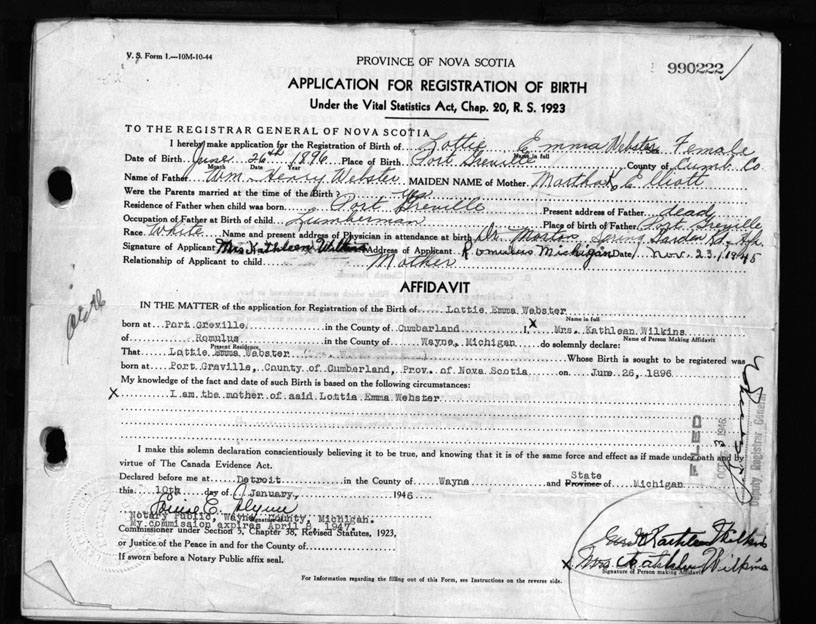 V. S. Form 1.—10M-10-44
PROVINCE OF NOVA SCOTIA
990222
APPLICATION FOR REGISTRATION OF BIRTH
Under the Vital Statistics Act, Chap. 20, R. S. 1923
TO THE REGISTRAR GENERAL OF NOVA SCOTIA
I hereby make application for the Registration of Birth of Lottie Emma Webster Female
Name in full
Date of Birth June 26th 1896 Place of Birth Port Greville County of Cumb. Co.
Month Date Year
Name of Father Wm. Henry Webster MAIDEN NAME of Mother Martha K Elliott
Were the Parents married at the time of the Birth? Yes
Residence of Father when child was born Port Greville Present address of Father dead
Occupation of Father at Birth of child Lumberman Place of birth of Father Port Greville
Race White Name and present address of Physician in attendance at birth Dr. Morton Spring Garden Rd.
Signature of Applicant Mrs Kathleen Wilkins Address of Applicant Romulus Michigan Date Nov. 23, 1945
Relationship of Applicant to child Mother
AFFIDAVIT
IN THE MATTER of the application for Registration of the Birth of Lottie Emma Webster
Name in full
born at Port Greville in the County of Cumberland I, X Mrs. Kathlean Wilkins
Name of Person Making Affidavit
of Romulus in the County of Wayne, Michigan do solemnly declare:
Present Residence
That Lottie Emma Webster Whose Birth is sought to be registered was
born at Port Graville, County of Cumberland, Prov. of Nova Scotia on June 26, 1896
My knowledge of the fact and date of such Birth is based on the following circumstances:
X I am the mother of said Lottia Emma Webster
I make this solemn declaration conscientiously believing it to be true, and knowing that it is of the same force and effect as if made under oath and by
virtue of The Canada Evidence Act.
Declared before me at Detroit in the County of Wayne and Province of State Michigan
this 10th day of January, 1946
Notary Public, Wayne County, Michigan.
My commission expires April 9, 1947.
Commissioner under Section 5, Chapter 38, Revised Statutes, 1923,
or Justice of the Peace in and for the County of
If sworn before a Notary Public affix seal.
X Mrs. Kathleen Wilkins
Signature of Person making Affidavit
For Information regarding the filling out of this Form, see Instructions on the reverse side.
FILED
OCT 3 1946
Deputy Registrar General